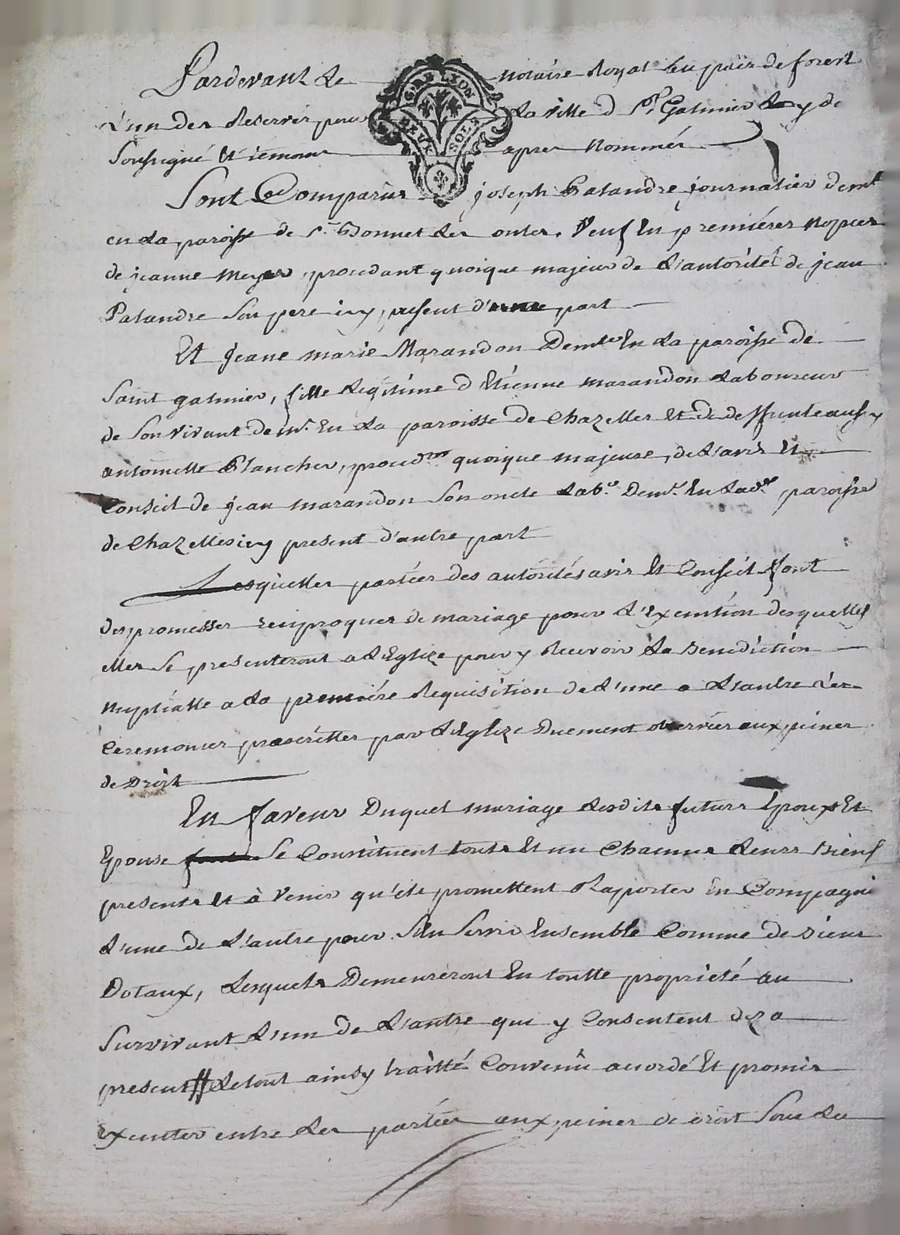 Pardevant Le notaire Royal au païs de forest
L'un des Reservés pour La ville d St Galmier Loy de
Soussigné Et temoins apres Nommés
GEN. DE LYON
DEUX SOLS
Sont Comparus joseph Palandre journalier demt
en La paroisse de St Bonnet Les oules, Veuf En premiéres Nopces
de jeanne Meyer, procedant quoique majeur de L'autorité de jean
Palandre Son pere icy present d'une part
Et jeane marie Marandon Demte En La paroisse de
Saint galmier, fille Legitime d Etienne marandon Laboureur
de Son vivant demt En La paroisse de Chazelles Et de deffunte
antoinette Blanchet, procedant quoique majeure, de L'avis Et
Conseil de jean marandon Son oncle Labr Demt En Lade paroisse
de Chazelles icy present d'autre part
Lesquelles partées des autorités avis Et Conseil font
des promesses reciproques de mariage pour L'execution desquelles
elles Se presenteront a L'Eglize pour y Recevoir La Benediction
nuptialle a La premiére Requisition de L'une a L'autre Les
Ceremonies prescrittes par L'Eglize Duement observées aux peines
de Droit
En faveur Duquel mariage Lesdits futurs Epoux Et
Epouse Se Constituent touts Et un Chacuns Leurs Biens
presents Et à Venir qu'ils promettent Raporter En Compagni
L'une de L'autre pour S'en Servir Ensemble Comme de Biens
Dotaux, Lesquels Demeureront En toutte proprieté au
Survivant L'un de L'autre qui y Consentent dez a
present // Le tout ainsy traitté Convenû acordé Et promis
executer entre Les partées aux peines de droit Sous La